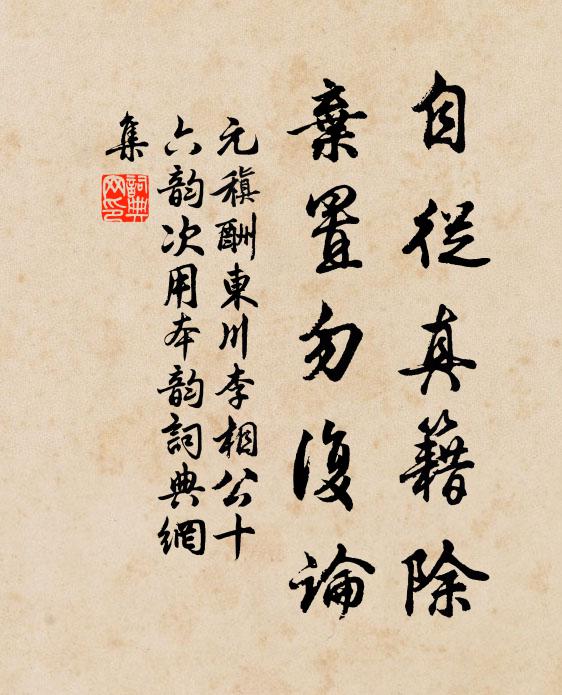 自從真籍除
棄置勿復論
元稹酬東川李相公十
六韵次用本韵詞典網
集
詞典
网印